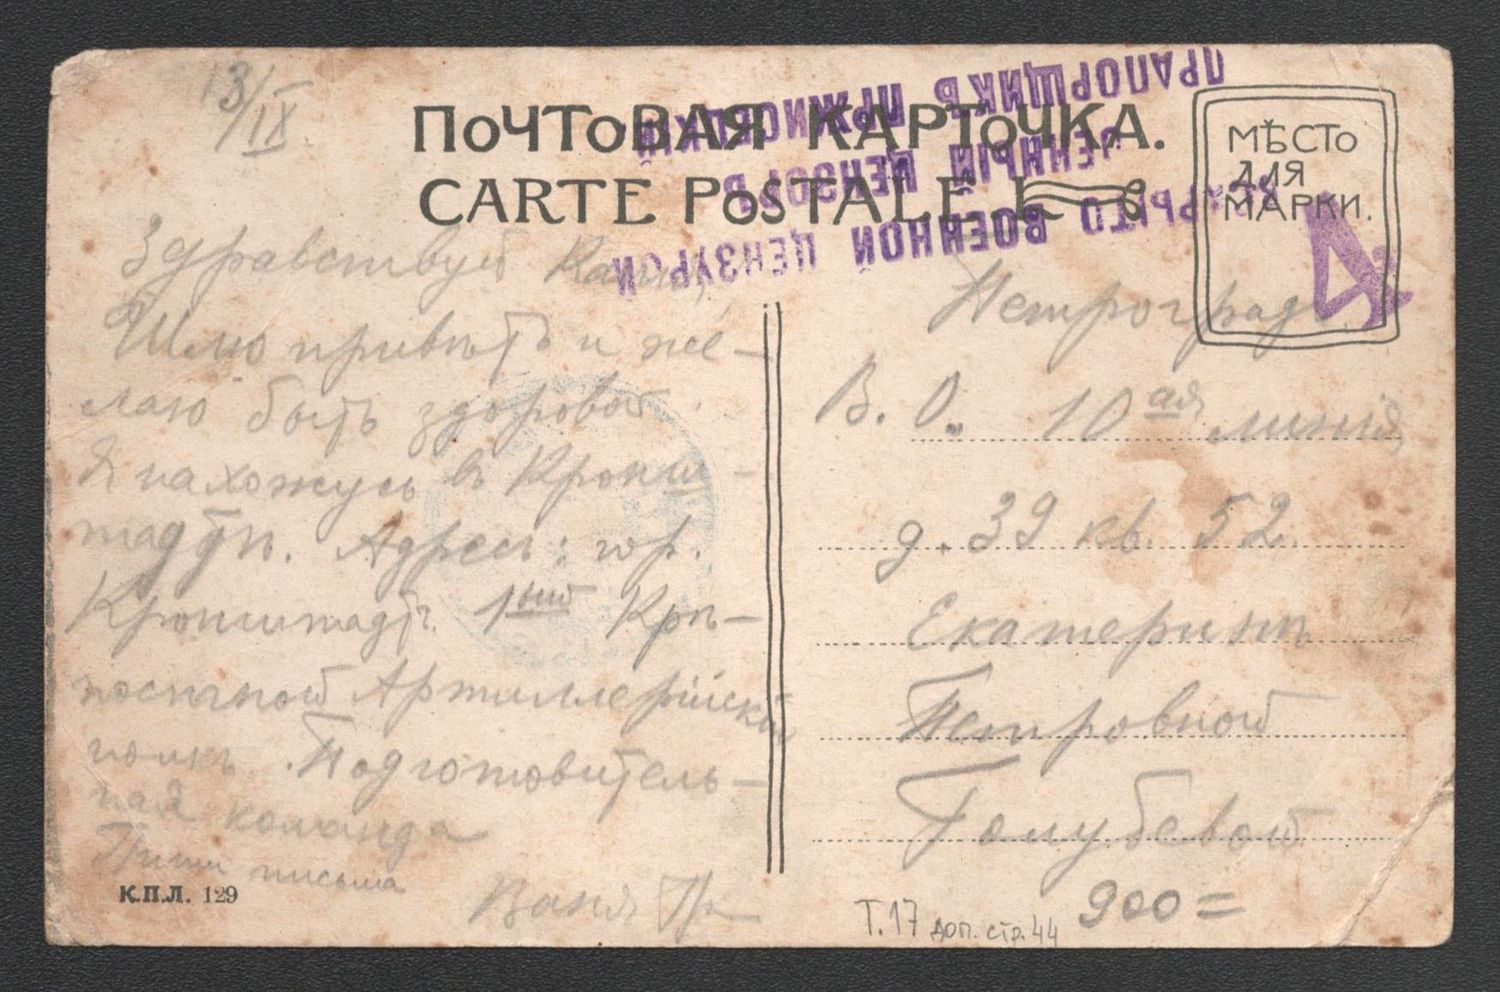 13/IX.
ПОЧТОВАЯ КАРТОЧКА.
CARTE POSTALE
МѢСТО
ДЛЯ
МАРКИ.
ПРАПОРЩИКЪ
ВОЕННЫЙ ЦЕНЗОРЪ
ВСКРЫТО ВОЕННОЙ ЦЕНЗУРОЙ
4
Здравствуй Катя,
Шлю приветъ и же-
лаю быть здоровой
Я нахожусь в Кронш-
тадтѣ. Адресъ: гор.
Кронштадтъ 1ный Крѣ-
постной Артиллерійскій
полкъ. Подготовитель-
ная команда
Пиши письма
Ваня
К.П.Л. 129
Петроградъ
В. О. 10ая линія
д. 39 кв. 52.
Екатеринѣ
Петровной
Голубевой
Т.17 доп. стр. 44
900=